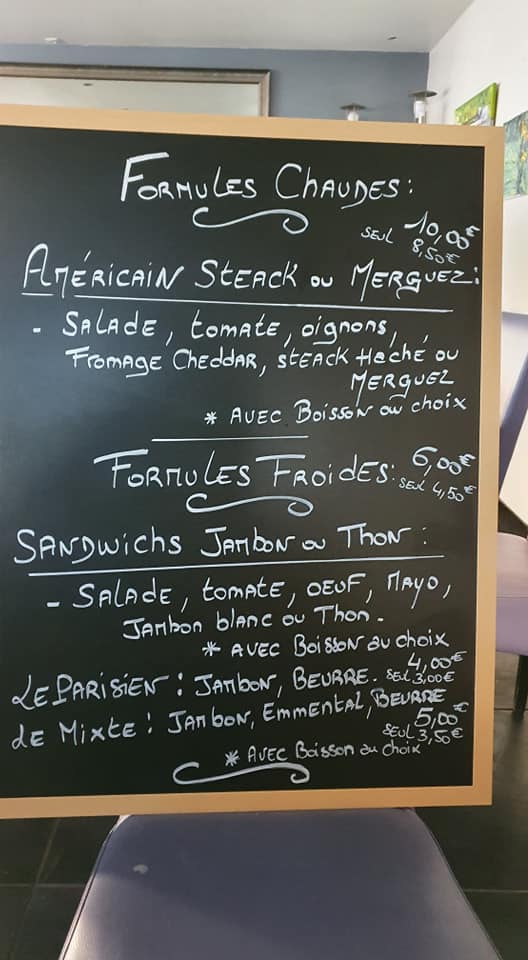 FORMULES CHAUDES:
10,00€
SEUL 8,50€
AMÉRICAIN STEACK OU MERGUEZ:
- SALADE, tomate, oignons,
FROMAGE CHEDDAR, STEACK HACHÉ OU
MERGUEZ
* AVEC BOISSON au choix
FORMULES FROIDES: 6,00€
SEUL 4,50€
SANDWICHS JAMBON OU THON:
- SALADE, tomate, OEUF, MAYO,
JAMBON blanc OU THON.
* AVEC BOISSON au choix
4,00€
LE PARISIEN: JAMBON, BEURRE. SEUL 3,00€
LE MIXTE: JAMBON, EMMENTAL, BEURRE
5,00€
SEUL 3,50€
* AVEC BOISSON au choix